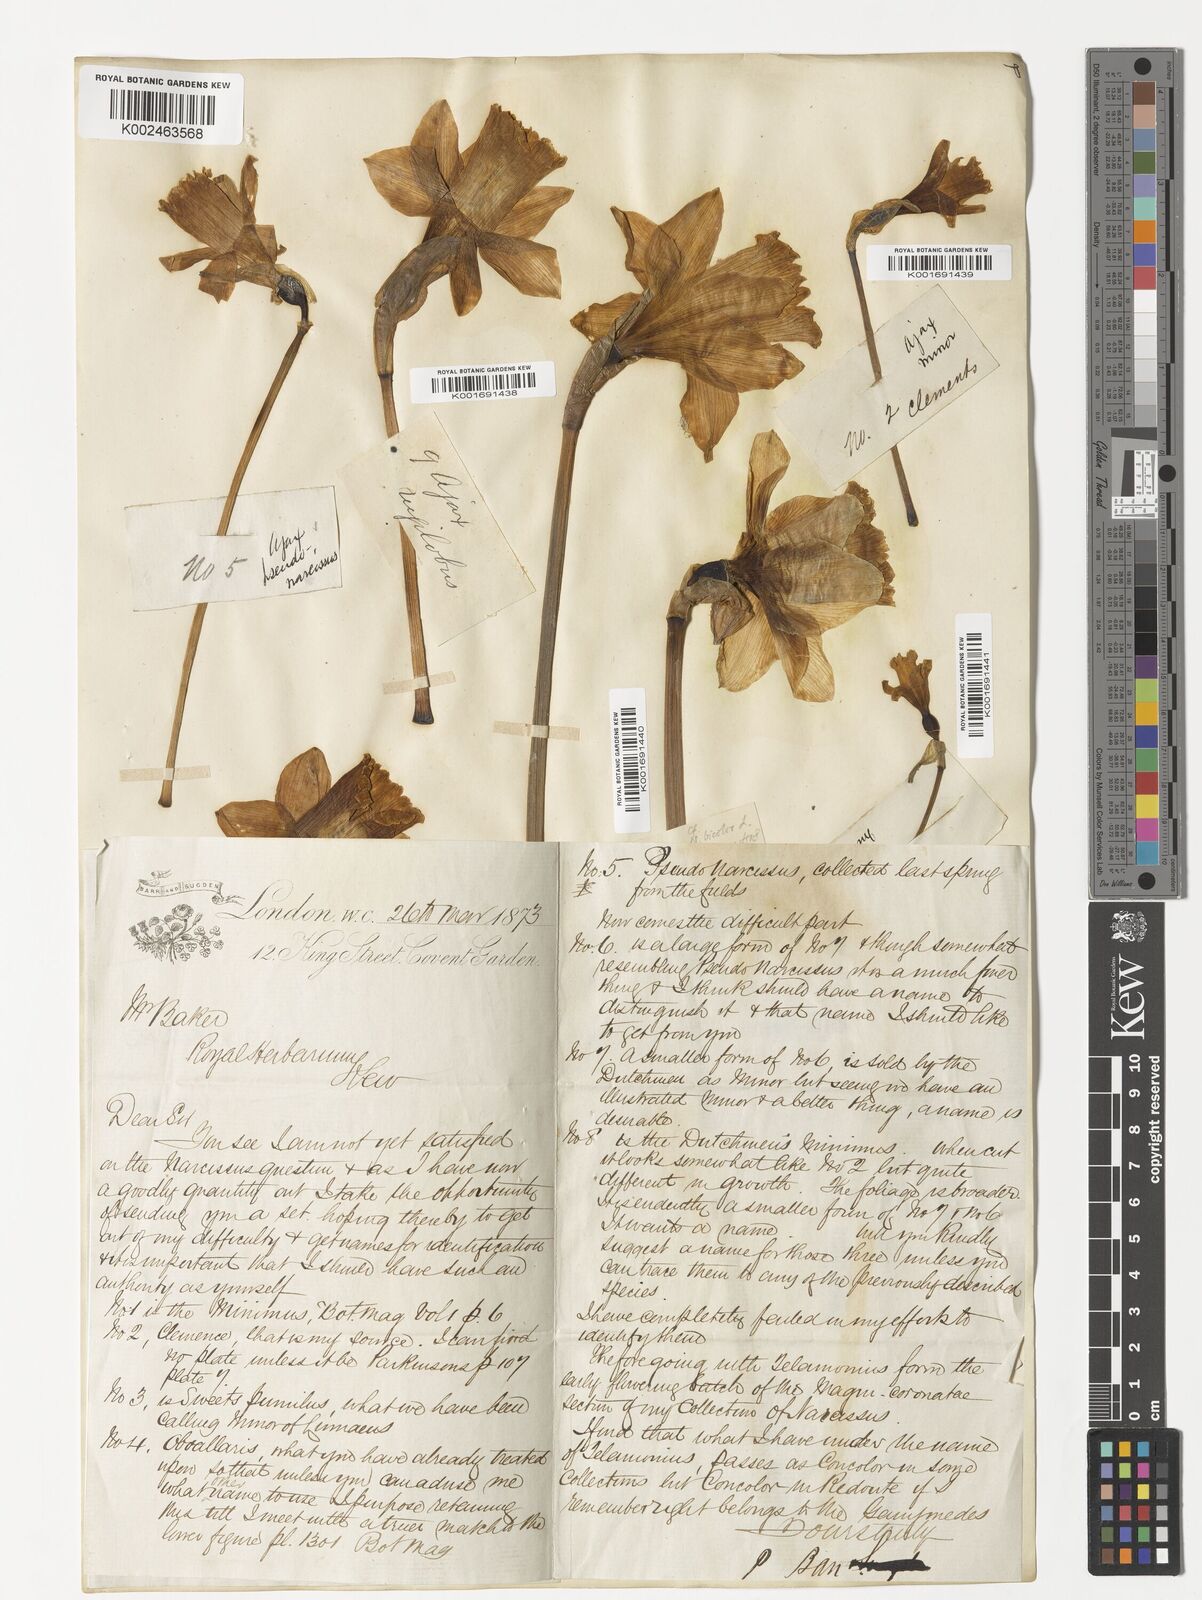 ROYAL BOTANIC GARDENS KEW
K002463568
ROYAL BOTANIC GARDENS KEW
K001691438
ROYAL BOTANIC GARDENS KEW
K001691439
ROYAL BOTANIC GARDENS KEW
K001691440
ROYAL BOTANIC GARDENS KEW
K001691441
Ajax
minor
No. 2 Clements
9 Ajax
rugilobus
No 5
Ajax
pseudo-
narcissus
bicolor L.
BARR AND SUGDEN
London. W.C. 26th Mar 1873
12, King Street, Covent Garden.
Mr Baker
Royal Herbarium
Kew
Dear Sir
You see I am not yet satisfied
on the Narcissus question & as I have now
a goodly quantity out I take the opportunity
of sending you a set, hoping thereby to get
out of my difficulty & get names for identification
& it is important that I should have such an
authority as yourself
No 1 is the Minimus, Bot. Mag Vol 1 p. 6
No 2, Clemence, that is my source. I can find
no plate unless it be Parkinsons p 107
plate 7
No 3, is Sweets pumilus, what we have been
calling Minor of Linnaeus
No 4. Oboallaris, what you have already treated
upon so that unless you can advise me
what name to use I purpose retaining
this till I meet with a truer match to the
lower figure pl. 1301 Bot Mag
No. 5. Pseudo Narcissus, collected last spring
from the fields
Now comes the difficult part
No. 6. is a large form of No 7 & though somewhat
resembling Pseudo Narcissus it is a much finer
thing & I think should have a name to
distinguish it & that name I should like
to get from you
No 7. A smaller form of No 6, is sold by the
Dutchmen as Minor but seeing we have an
illustrated Minor & a better thing, a name is
desirable.
No 8 is the Dutchmen's Minimus. When cut
it looks somewhat like No 2 but quite
different in growth. The foliage is broader.
It is evidently a smaller form of No 7 & No 6
It wants a name. Will you kindly
suggest a name for those three unless you
can trace them to any of the previously described
species.
I have completely failed in my efforts to
identify them
The foregoing with Telamonius form the
early flowering batch of the Magni-coronatae
section of my Collection of Narcissus.
I find that what I have under the name
of Telamonius, passes as Concolor in some
collections but Concolor in Redoute if I
remember right belongs to the Ganymedes
Yours truly
P Barr
Kew
Royal Botanic Gardens
Copyright reserved
cm
inches
D50 Illuminant, 2 degree observer
Density
Golden Thread
Colors by Munsell Color Services Lab
Don Williams